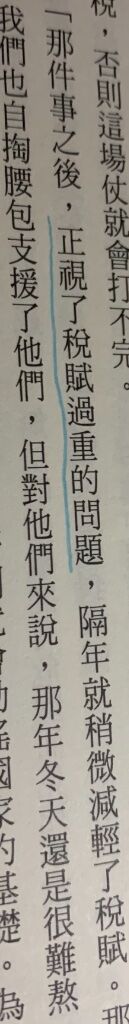 稅，否則這場仗就會打不完。
「那件事之後，正視了稅賦過重的問題，隔年就稍微減輕了稅賦。那
我們也自掏腰包支援了他們，但對他們來說，那年冬天還是很難熬
國家的基礎。為